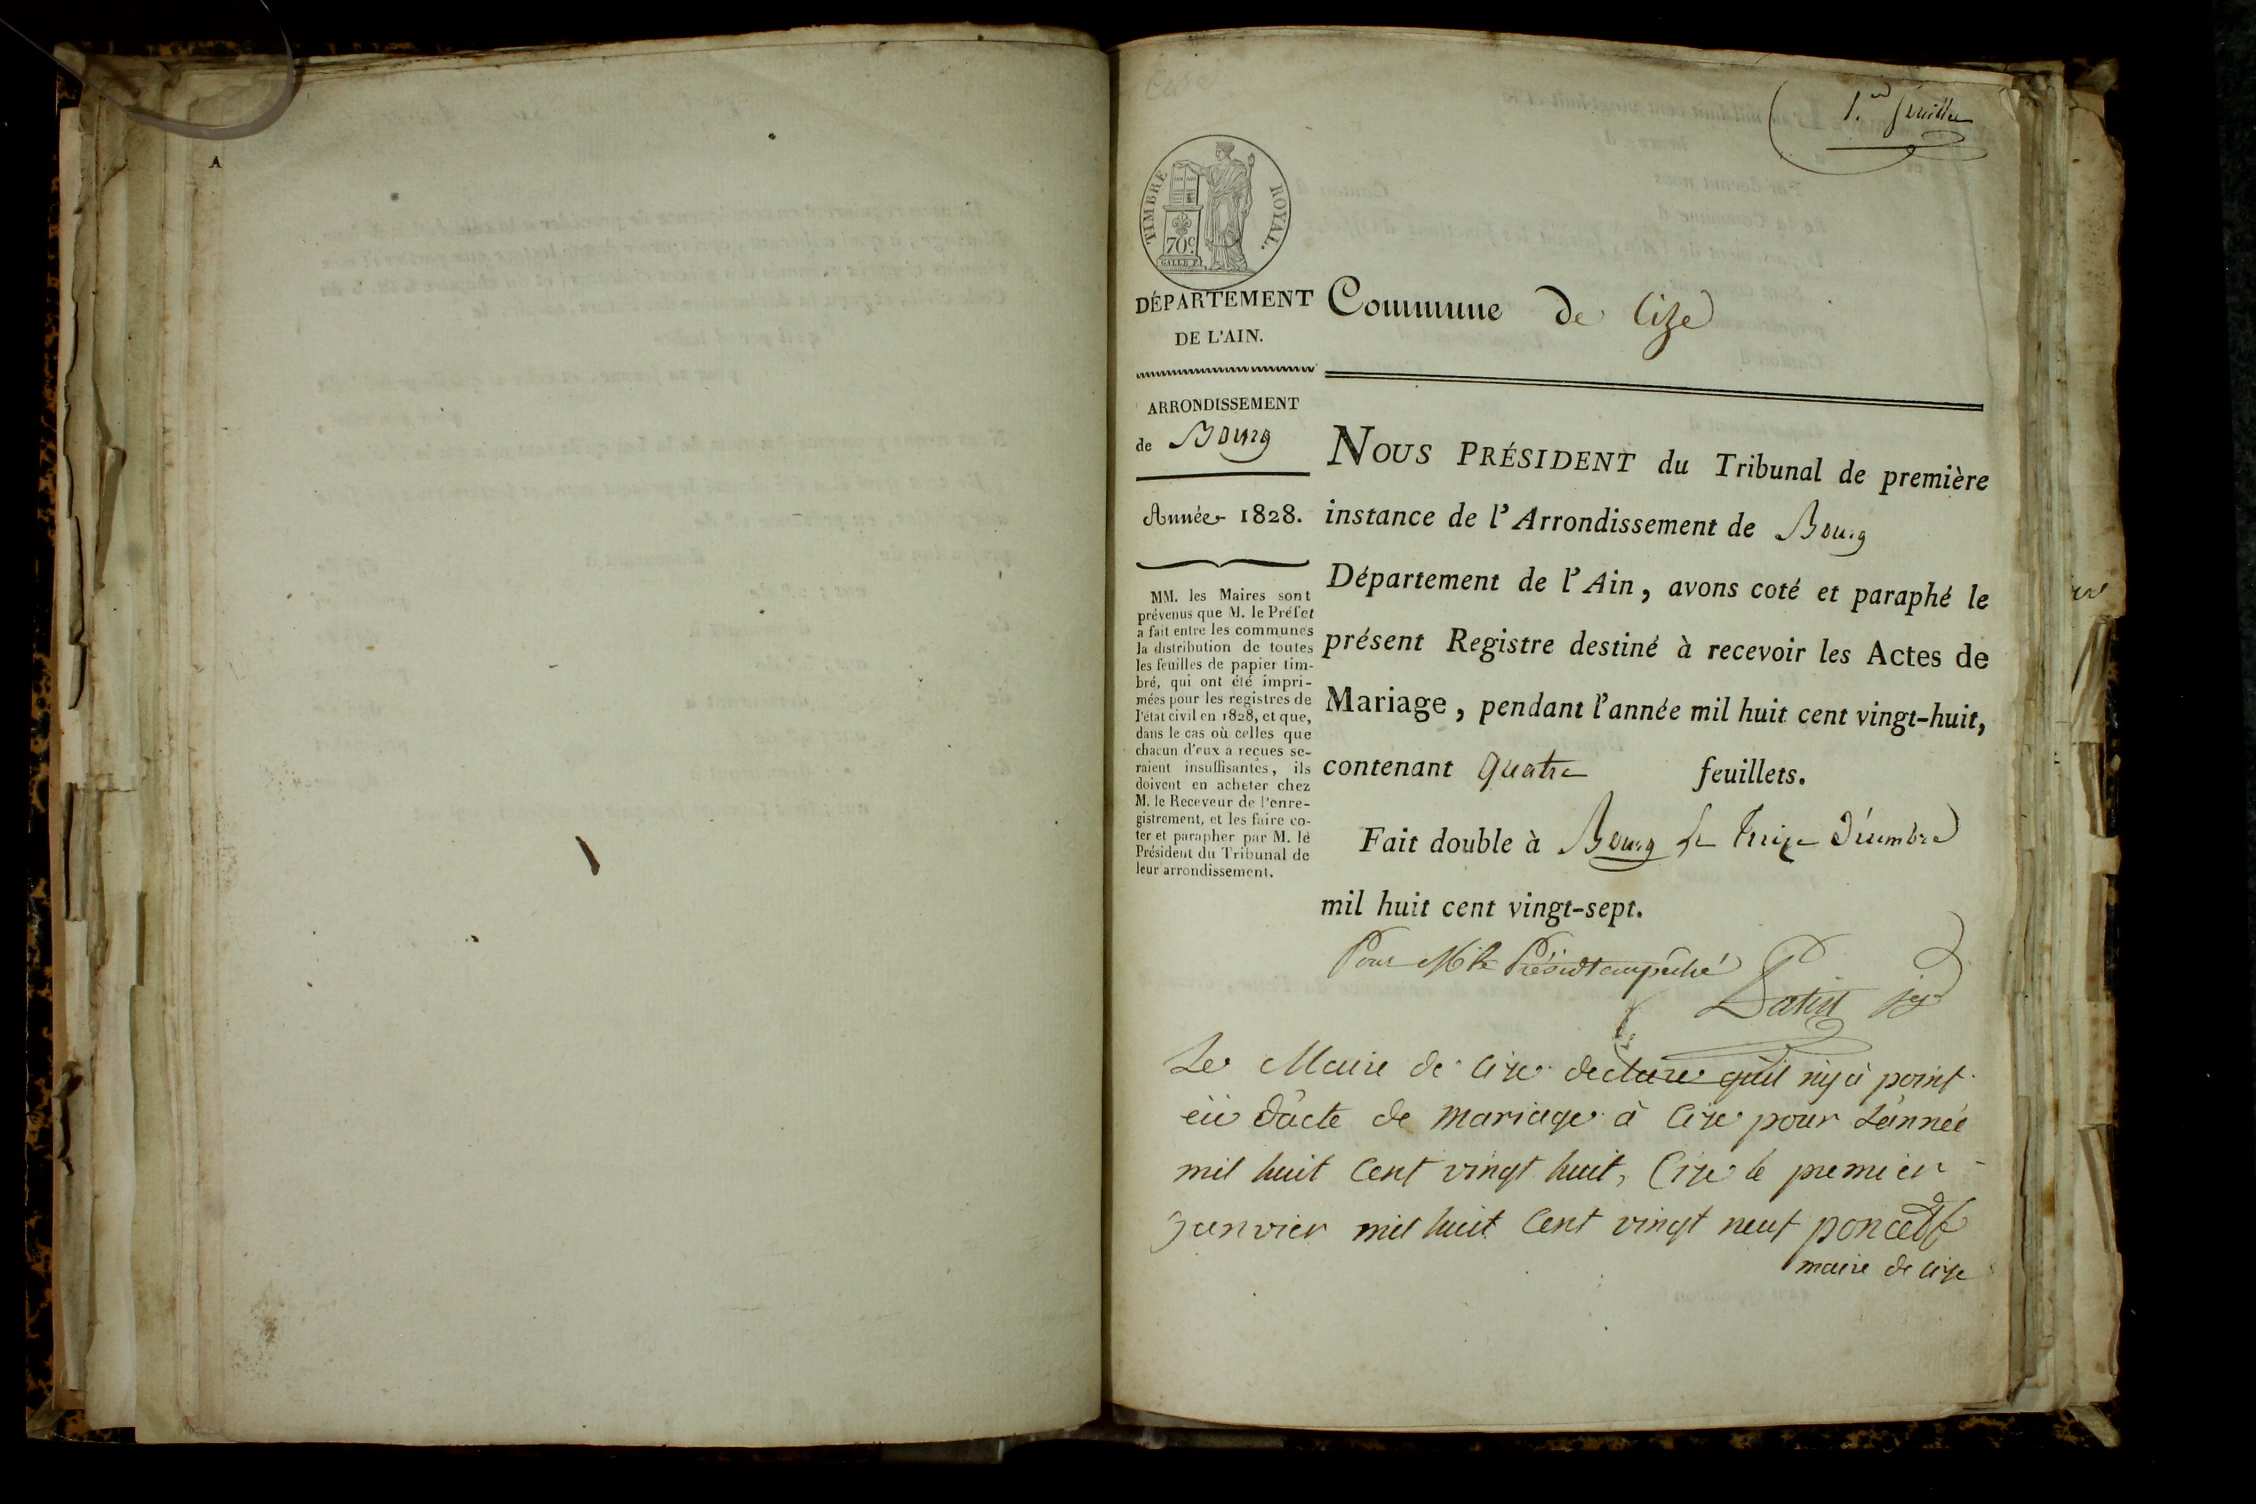 A
1.er feuillet
TIMBRE ROYAL.
70c.
GALLE F.
DÉPARTEMENT
DE L'AIN.
Commune de Cize
ARRONDISSEMENT
de Bourg
Année 1828.
MM. les Maires sont
prévenus que M. le Préfet
a fait entre les communes
la distribution de toutes
les feuilles de papier tim-
bré, qui ont été impri-
mées pour les registres de
l'état civil en 1828, et que,
dans le cas où celles que
chacun d'eux a reçues se-
raient insuffisantes, ils
doivent en acheter chez
M. le Receveur de l'enre-
gistrement, et les faire co-
ter et parapher par M. le
Président du Tribunal de
leur arrondissement.
NOUS PRÉSIDENT du Tribunal de première
instance de l'Arrondissement de Bourg
Département de l'Ain, avons coté et paraphé le
présent Registre destiné à recevoir les Actes de
Mariage, pendant l'année mil huit cent vingt-huit,
contenant quatre feuillets.
Fait double à Bourg le treize Décembre
mil huit cent vingt-sept.
Pour M. le Présidt empêché
Le Maire de Cize declare quil ny à point
eü dacte de mariage à Cize pour Lannée
mil huit Cent vingt huit, Cize le premier
Janvier mil huit Cent vingt neuf poncet
maire de Cize